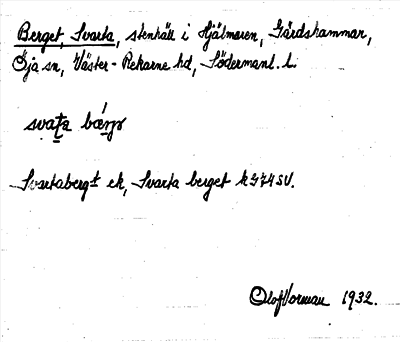 Berget, Svarta, stenhäll i Hjälmaren, Gärdshammar,
Öja sn, Väster-Rekarne hd, Södermanl. l.
svaṯa bærjr
Svartabergt ek, Svarta berget k 374 SV.
Olof Vorman 1932.